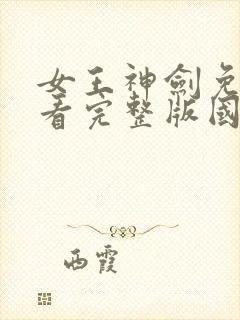 女王神劍免
看完整版國
西霞